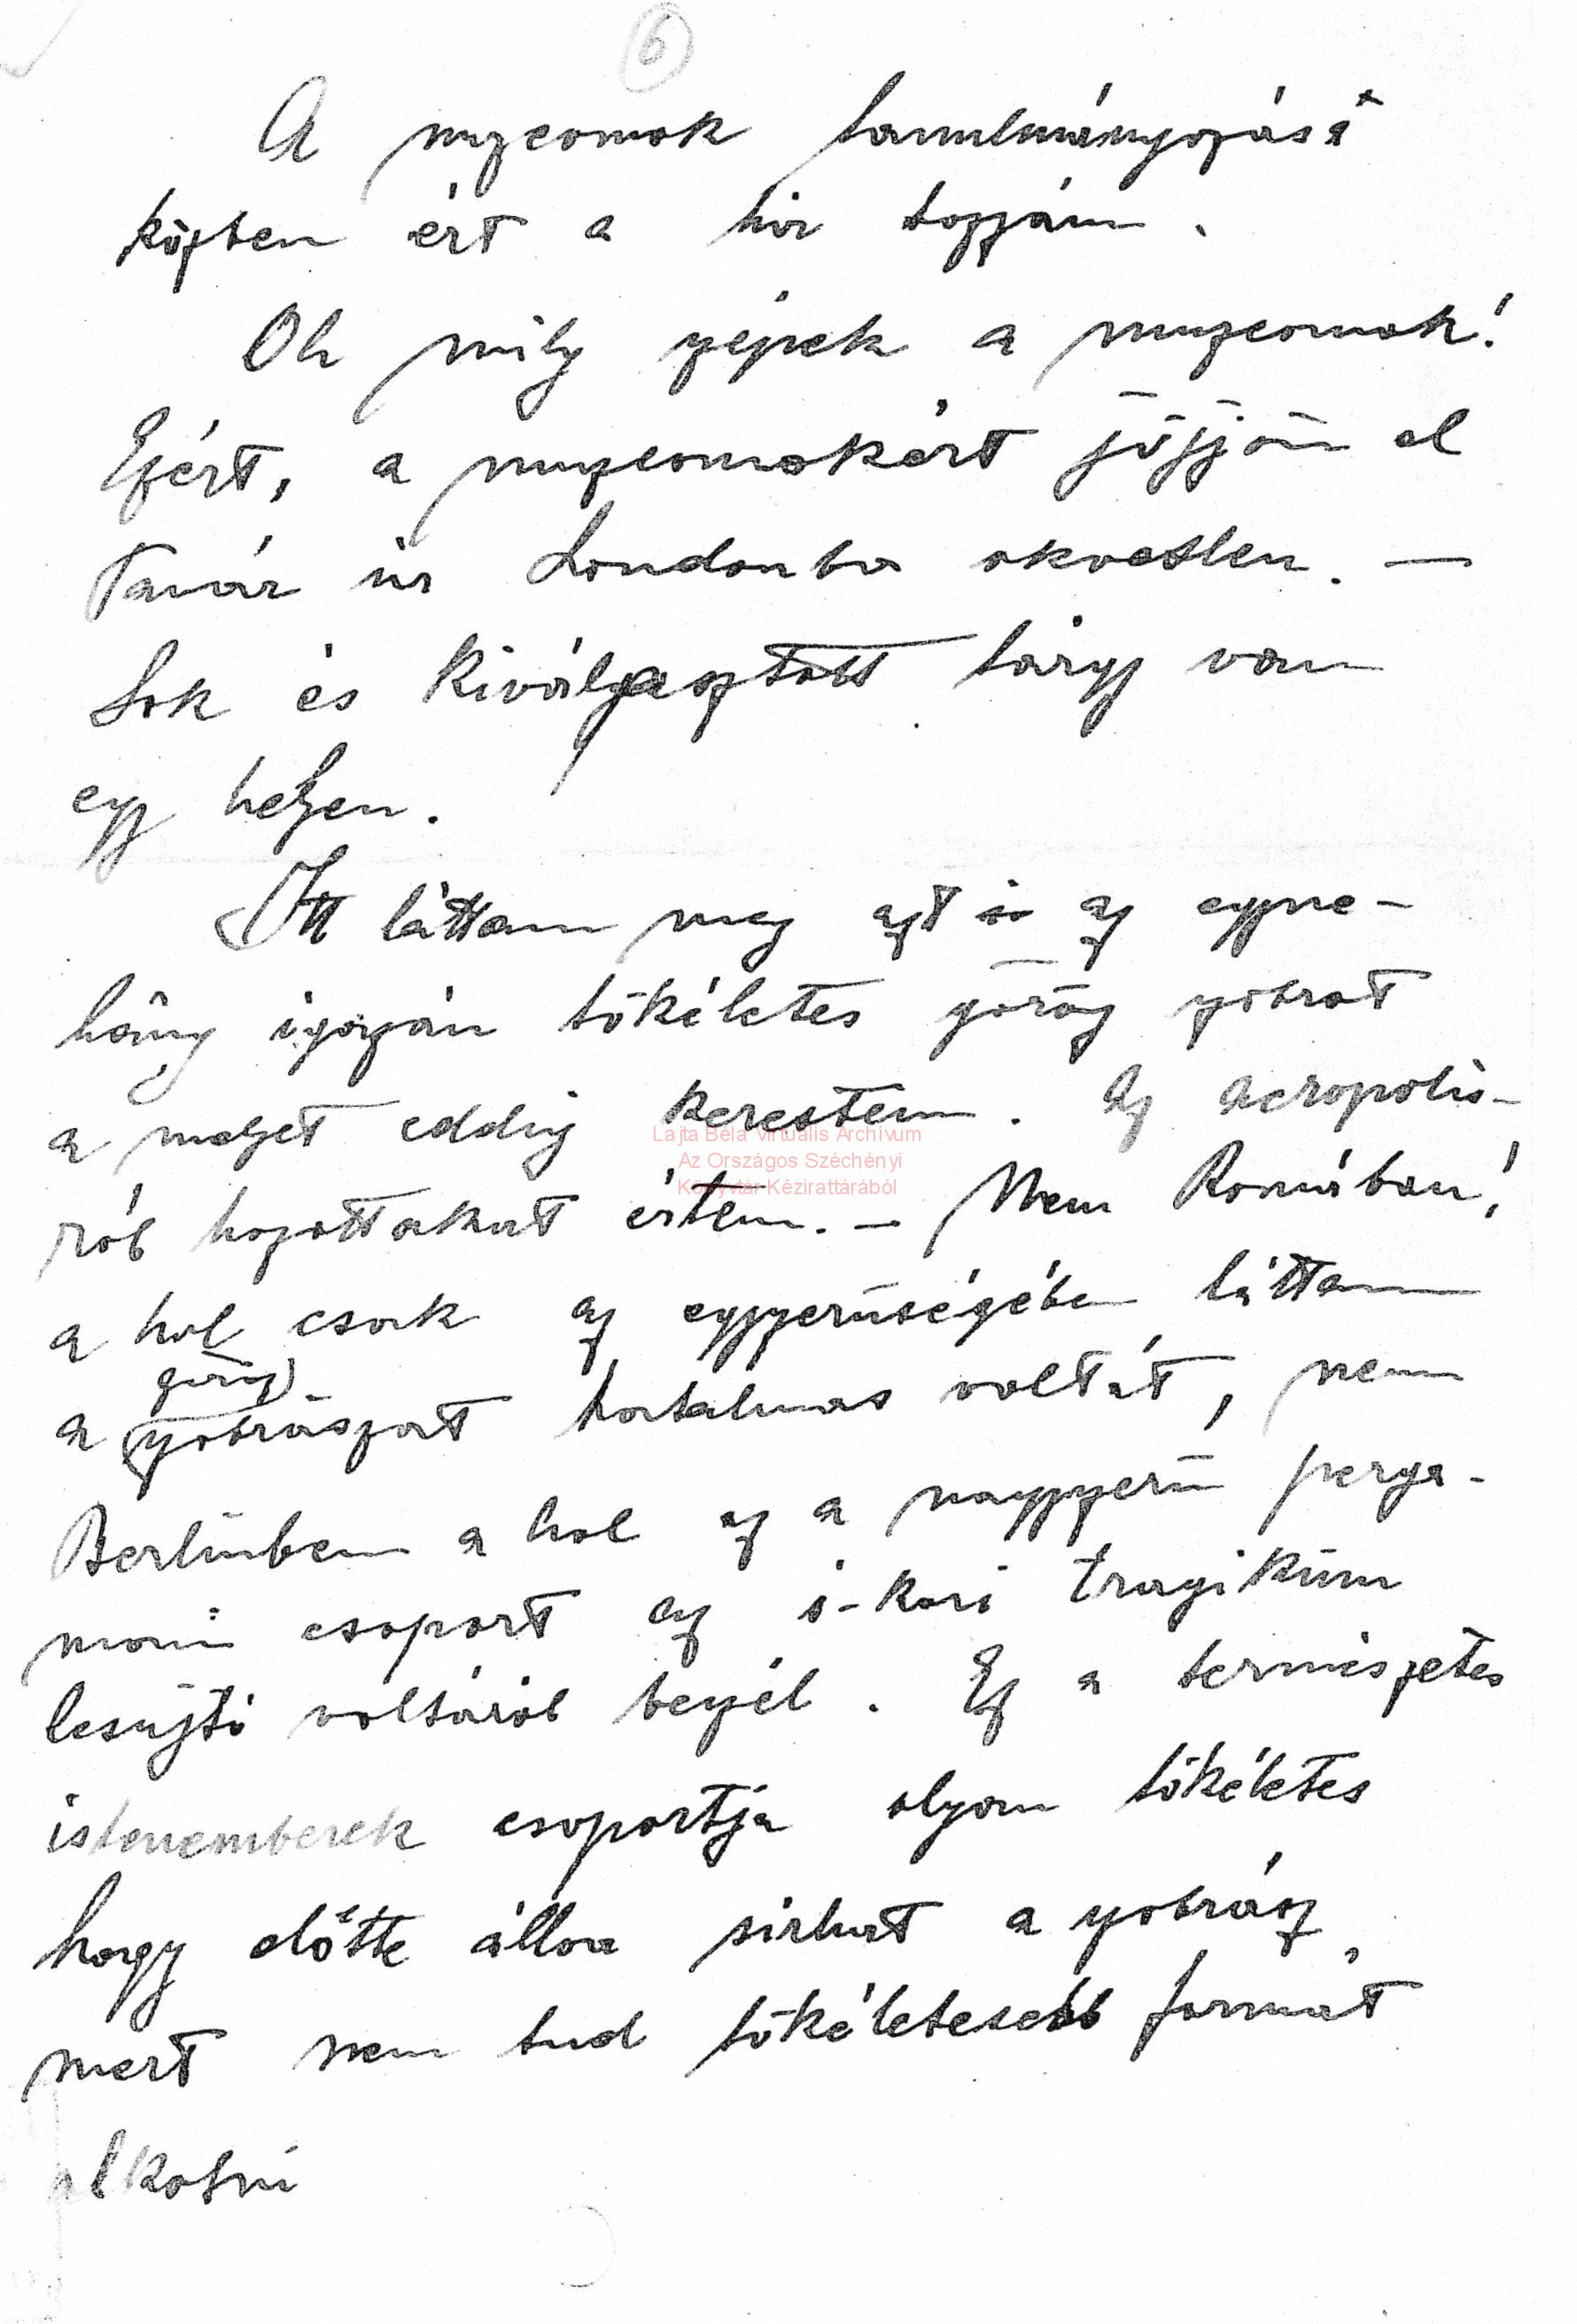 6
A muzeomok tanulmányozása
közben ért a hir hozzám.
Oh mily szépek a muzeomok!
Ezért, a muzeomokért jöjjön el
Tanár úr Londonba okvetlen. —
Sok és kiválasztott tárgy van
egy helyen.
Itt láttam meg azt is az egyne-
hány igazán tökéletes görög szobrot
a melyet eddig kerestem. Az Acropolis-
ról hozottakat értem. — Nem Romában!
a hol csak az egyszerüségében láttam
görög
a szobrászat hatalmas voltát, nem
Berlinben a hol az a nagyszerü perga-
moni csoport az ó-kori tragikum
lesujtó voltáról beszél. Ez a természetes
istenemberek csoportja olyan tökéletes
hogy előtte állva sirhat a szobrász,
mert nem tud tökéletesebb formát
alkotni
Lajta Béla Virtuális Archívum
Az Országos Széchényi
Könyvtár Kézirattárából